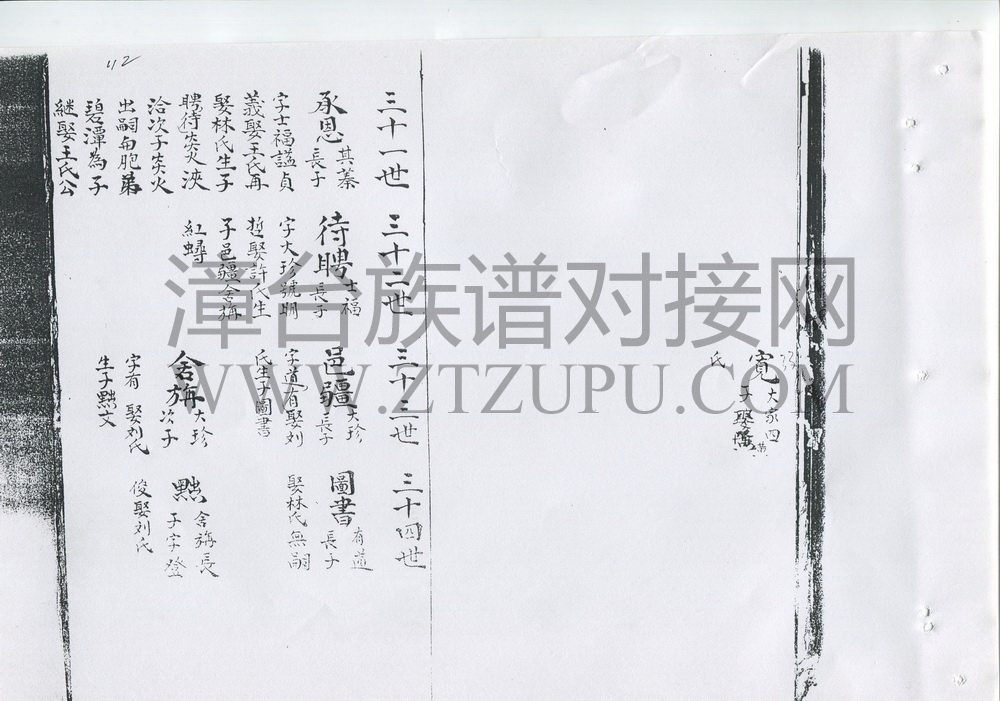 42
寬 大家四
子娶
氏
三十一世
承恩 其蓁
長子
字士福諡貞
義娶王氏再
娶林氏生子
聘待炎火浹
洽次子炎火
出嗣与胞弟
碧潭為子
継娶王氏公
三十二世
待聘 士福
長子
字大珍號明
哲娶許氏生
子邑疆舍旃
紅蟳
三十三世
邑疆 大珍
長子
字道有娶刘
氏生子圖書
舍旃 大珍
次子
字有 娶刘氏
生子點文
三十四世
圖書 有道
長子
娶林氏無嗣
點 舍旃長
子字登
俊娶刘氏
漳台族谱对接网
WWW.ZTZUPU.COM